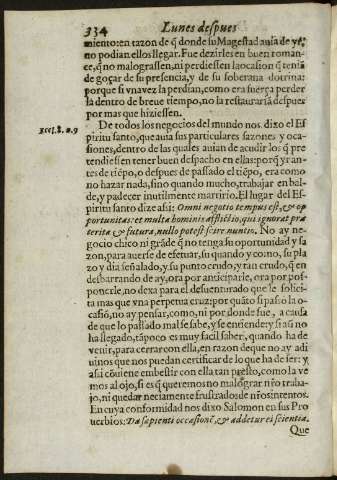 334 Lunes despues
miento: en razon de q̃ donde su Magestad auia de yr,
no podian ellos llegar. Fue dezirles en buen roman-
ce, q̃ no malograssen, ni perdiessen la ocasion q̃ teniã
de gozar de su presencia, y de su soberana dotrina:
porque si vna vez la perdian, como era fuerça perder
la dentro de breue tiempo, no la restaurariã despues
por mas que hiziessen.
Eccl. 8. n. 9
De todos los negocios del mundo nos dixo el Es
piritu santo, que auia sus particulares sazones y oca-
siones, dentro de las quales auian de acudir los q̃ pre
tendiessen tener buen despacho en ellas: porq̃ yr an-
tes de tiẽpo, o despues de passado el tiẽpo, era como
no hazar nada, sino quando mucho, trabajar en bal-
de, y padecer inutilmente martirio. El lugar del Es-
piritu santo dize assi: Omni negotio tempus est, & op
portunitas: et multa hominis afflictio, qui ignorat præ
terita & futura, nullo potest scire nuntio. No ay ne-
gocio chico ni grãde q̃ no tenga su oportunidad y sa
zon, para auerse de efetuar, su quando y como, su pla
zo y dia señalado, y su punto crudo, y tan crudo, q̃ en
desbarrando de ay, ora por anticiparle, ora por pos-
ponerle, no dexa para el desuenturado que le solici-
ta mas que vna perpetua cruz: por quãto si passò la o-
casiõ, no ay pensar, como, ni por donde fue, a causa
de que lo passado mal se sabe, y se entiende: y si aũ no
ha llegado, tãpoco es muy facil saber, quando ha de
venir, para cerrar con ella, en razon de que no ay adi
uinos que nos puedan certificar de lo que ha de ser: y
assi cõuiene embestir con ella tan presto, como la ve
mos al ojo, si es q̃ queremos no malograr nr̃o traba-
jo, ni quedar neciamente frustrados de nr̃os intentos.
En cuya conformidad nos dixo Salomon en sus Pro
uerbios: Da sapienti occasionẽ, & addetur ei scientia.
Que